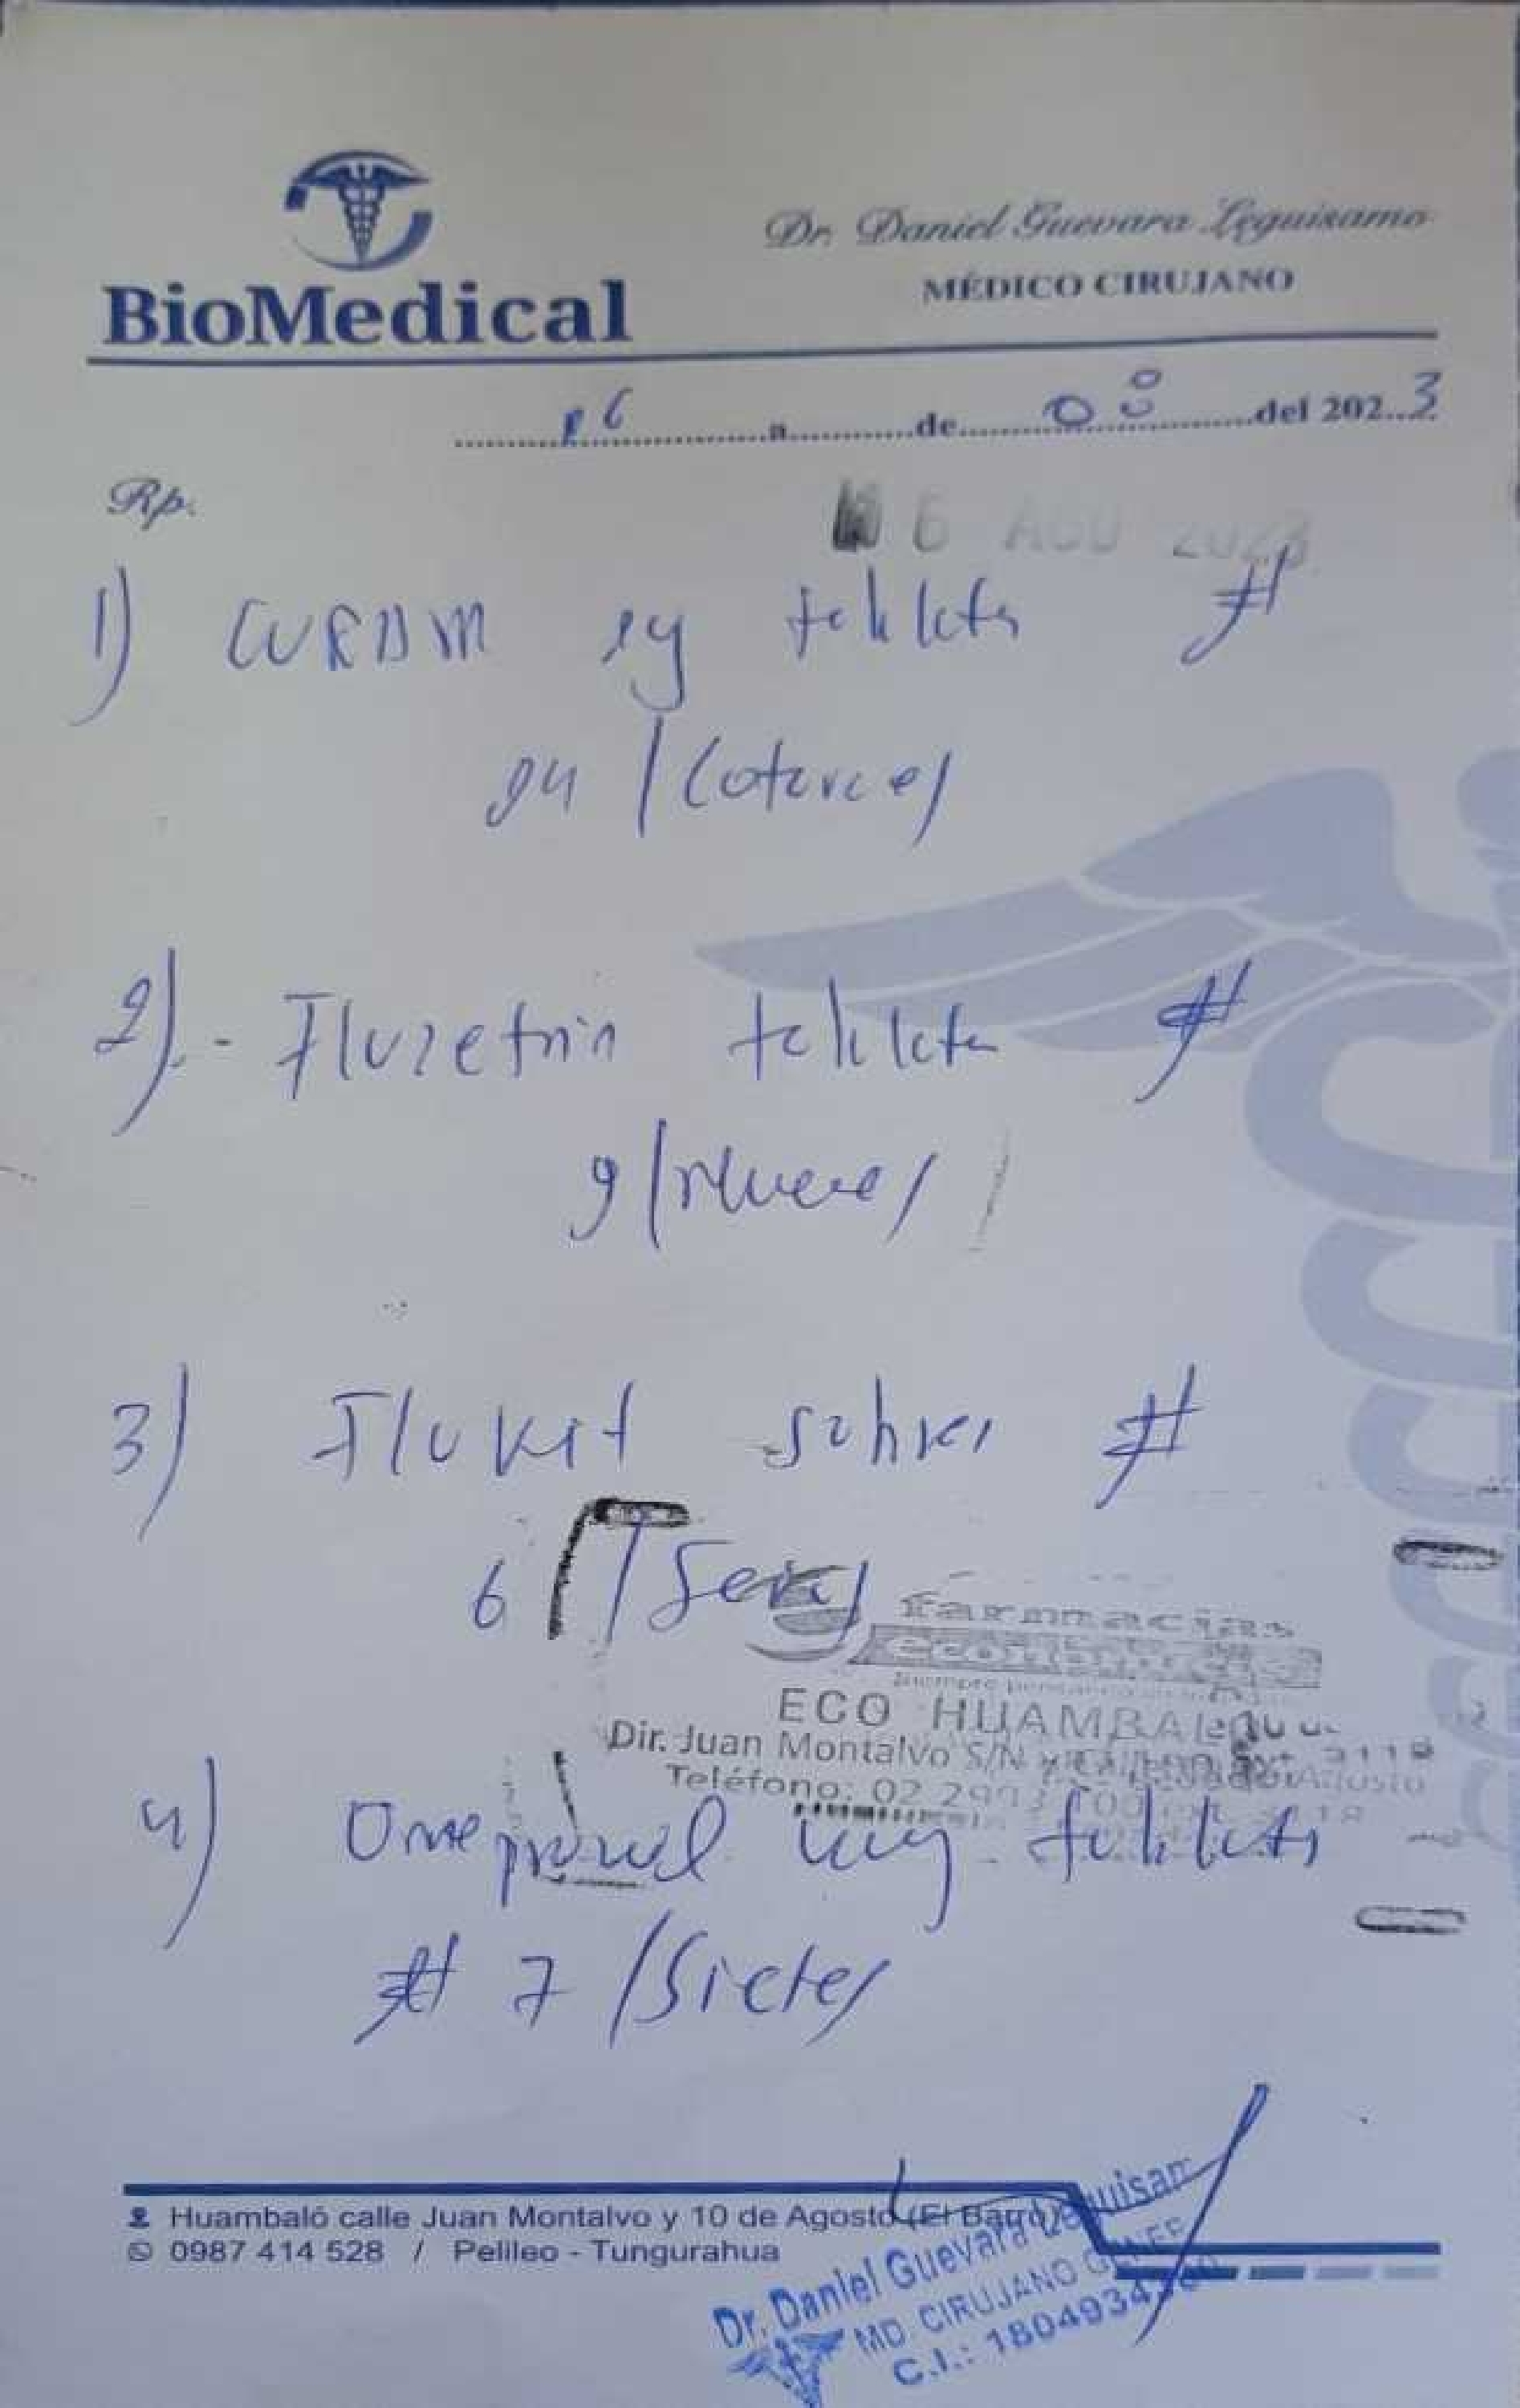 BioMedical
Dr. Daniel Guevara Leguisamo
MÉDICO CIRUJANO
16 a de 08 del 2023
Rp.
6 AGO 2023
1) CURAM 1g tabletas #
14 /Catorce/
2).- Fluzetrin tabletas #
9 /nueve/
3) Flukit sobres #
6 /Seis/
farmacias
económicas
ECO HUAMBALO
Dir. Juan Montalvo S/N
Teléfono: 02 299
4) Omeprazol tabletas
# 7 /Siete/
Huambaló calle Juan Montalvo y 10 de Agosto (El Barro)
0987 414 528 / Pelileo - Tungurahua
Dr. Daniel Guevara Leguisam
MD. CIRUJANO
C.I.: 1804934